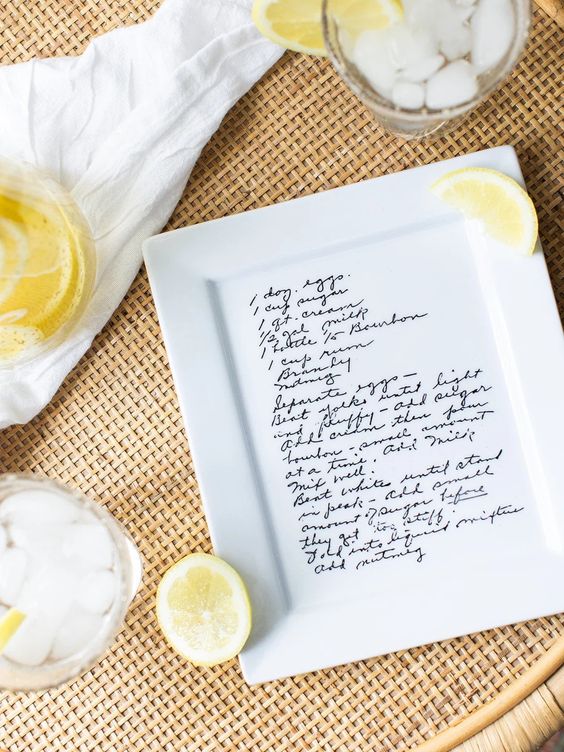 1 doz. eggs.
1 cup sugar
1 qt. cream
1/2 gal milk
1 bottle 1/5 Bourbon
1 cup rum
Brandy
nutmeg
Separate eggs -
Beat yolks until light
and fluffy - add sugar
Add cream then pour
bourbon - small amount
at a time. Add Milk
Mix well.
Beat whites until stand
in peak - add small
amount of sugar before
they get to stiff.
Fold into liquid mixture
add nutmeg